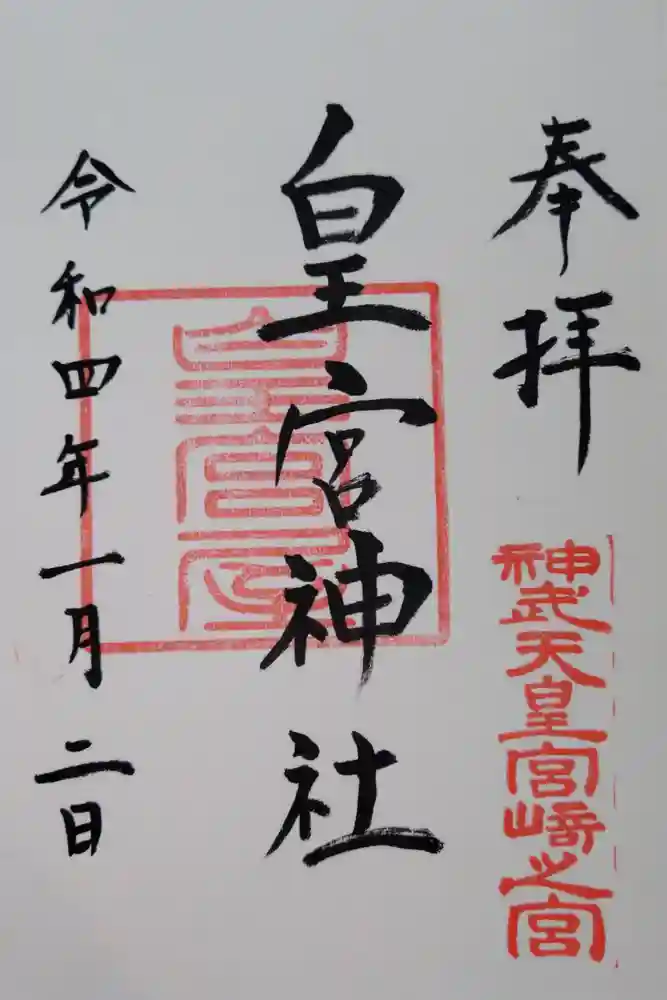 奉拝
神武天皇宮﨑之宮
皇宮神社
令和四年一月二日